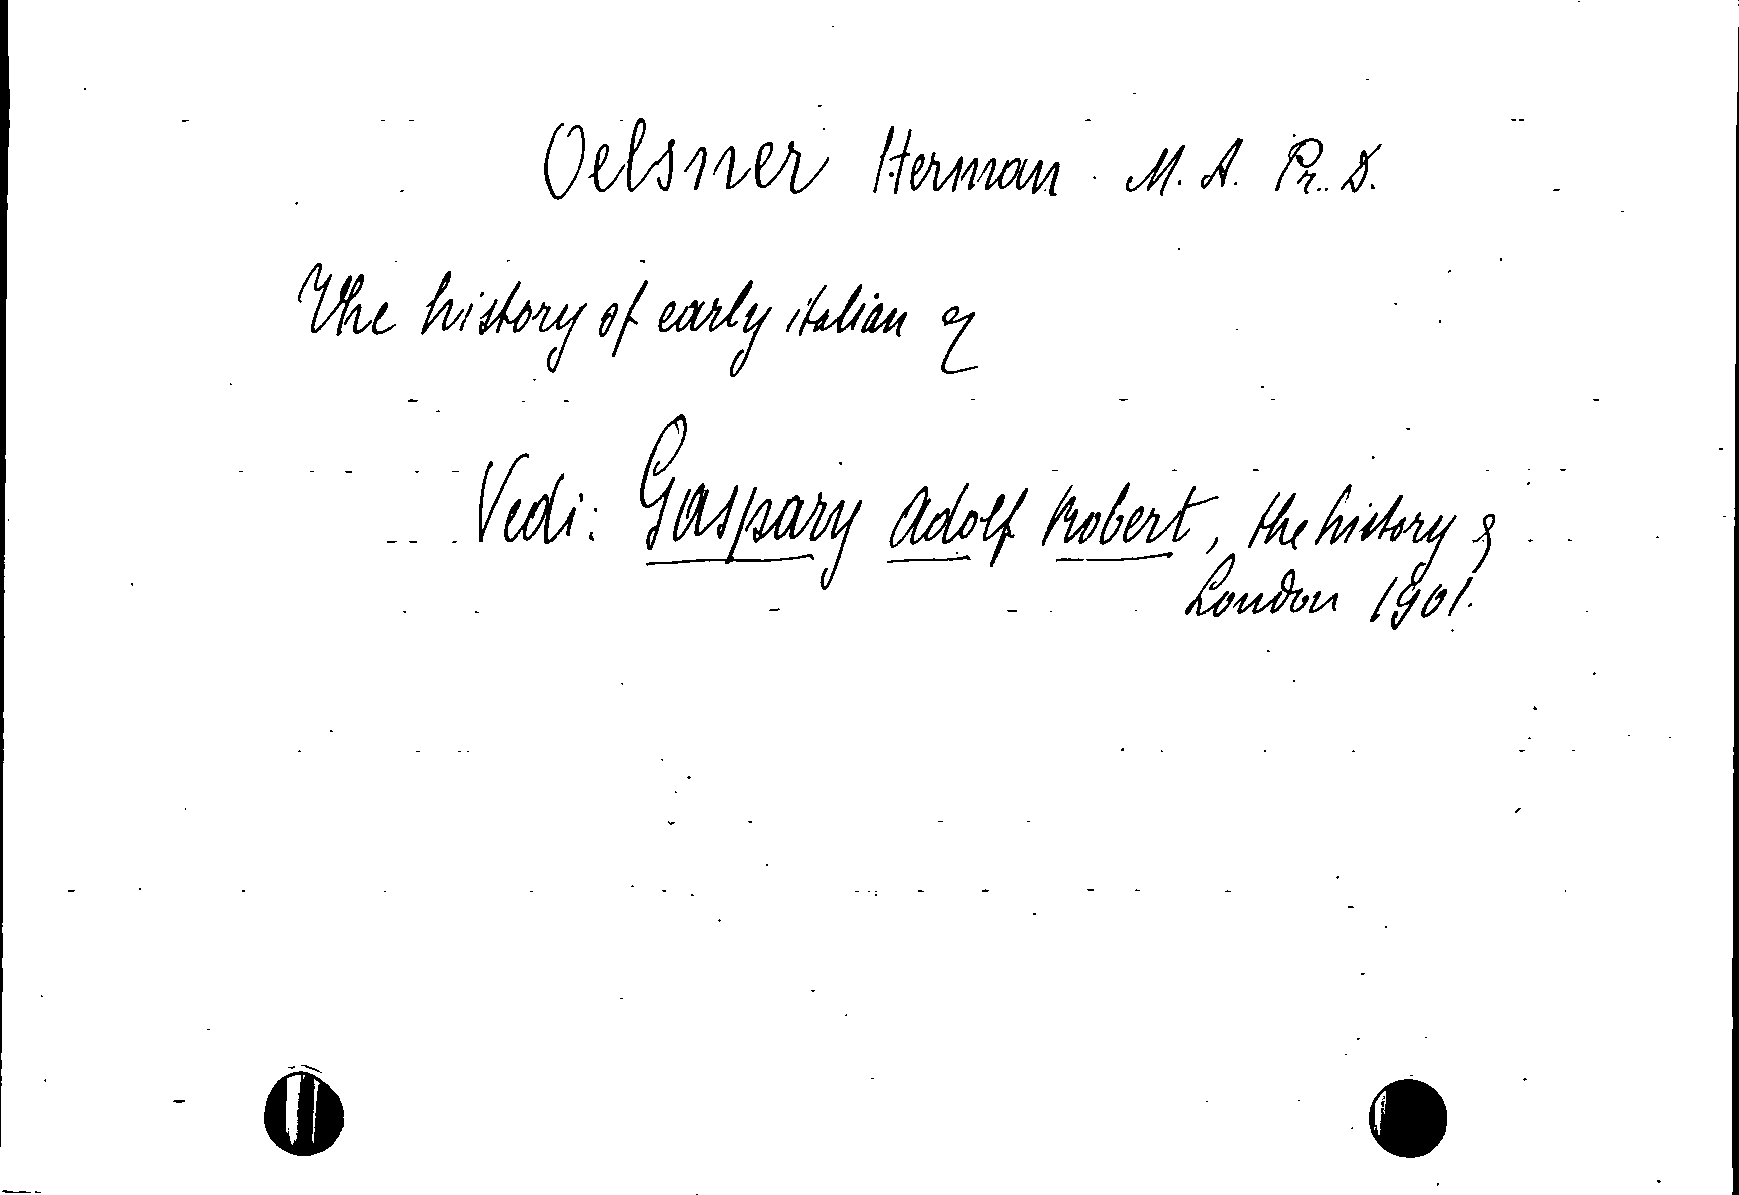 Oelsner Herman M. A. Pr. D.
The history of early italian &
Vedi: Gaspary Adolf Robert, the history &
London 1901.